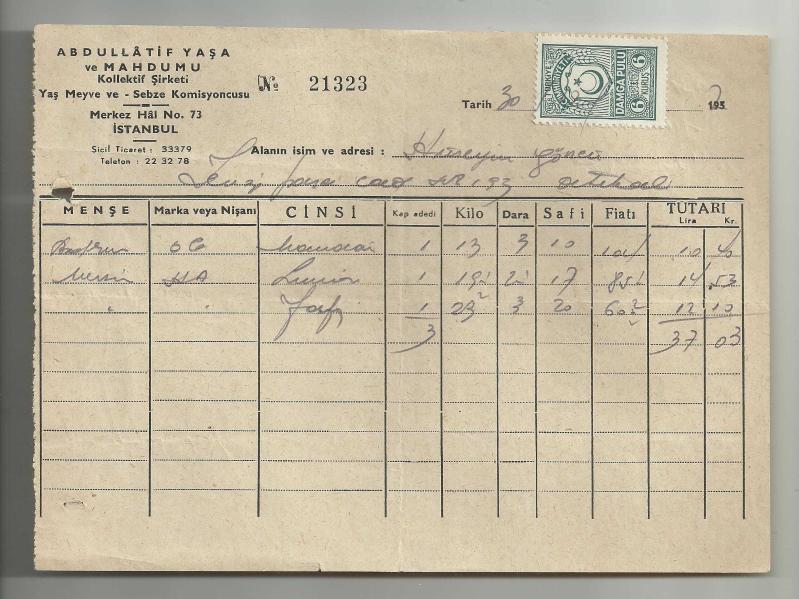 ABDULLÂTİF YAŞA
ve MAHDUMU
Kollektif Şirketi
Yaş Meyve ve - Sebze Komisyoncusu
Merkez Hâl No. 73
İSTANBUL
Sicil Ticaret : 33379
Telefon : 22 32 78
№ 21323
Tarih 30 195
TÜRKİYE CUMHURİYETİ
6 DAMGA PULU 6
KURUŞ
Alanın isim ve adresi : Hüseyin
MENŞE Marka veya Nişanı CİNSİ Kap adedi Kilo Dara Safi Fiatı TUTARI
Lira Kr.
OC 1 13 3 10 104 10 40
Mersin HA 1 19 2 17 85 14 53
1 23 3 20 60 12 10
3 37 03